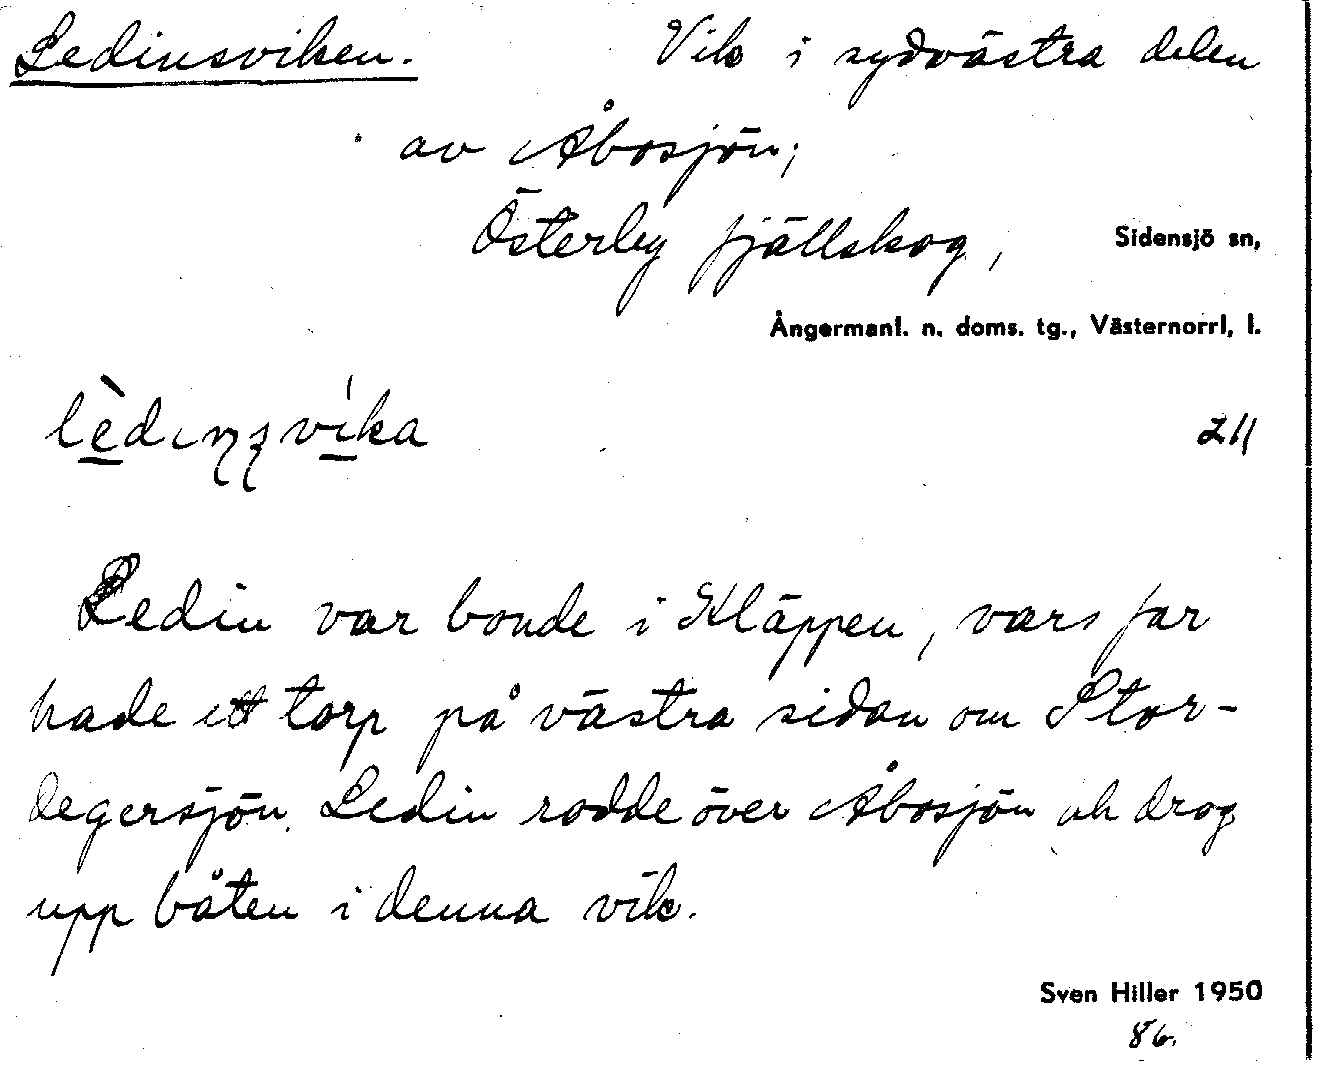 Ledinsviken. Vik i sydvästra delen
av Åbosjön;
Österby fjällskog, Sidensjö sn,
Ångermanl. n. doms. tg., Västernorrl. l.
211
Ledin var bonde i Kläppen, vars far
hade ett torp på västra sidan om Stor-
degersjön. Ledin rodde över Åbosjön och drog
upp båten i denna vik.
Sven Hiller 1950
86.